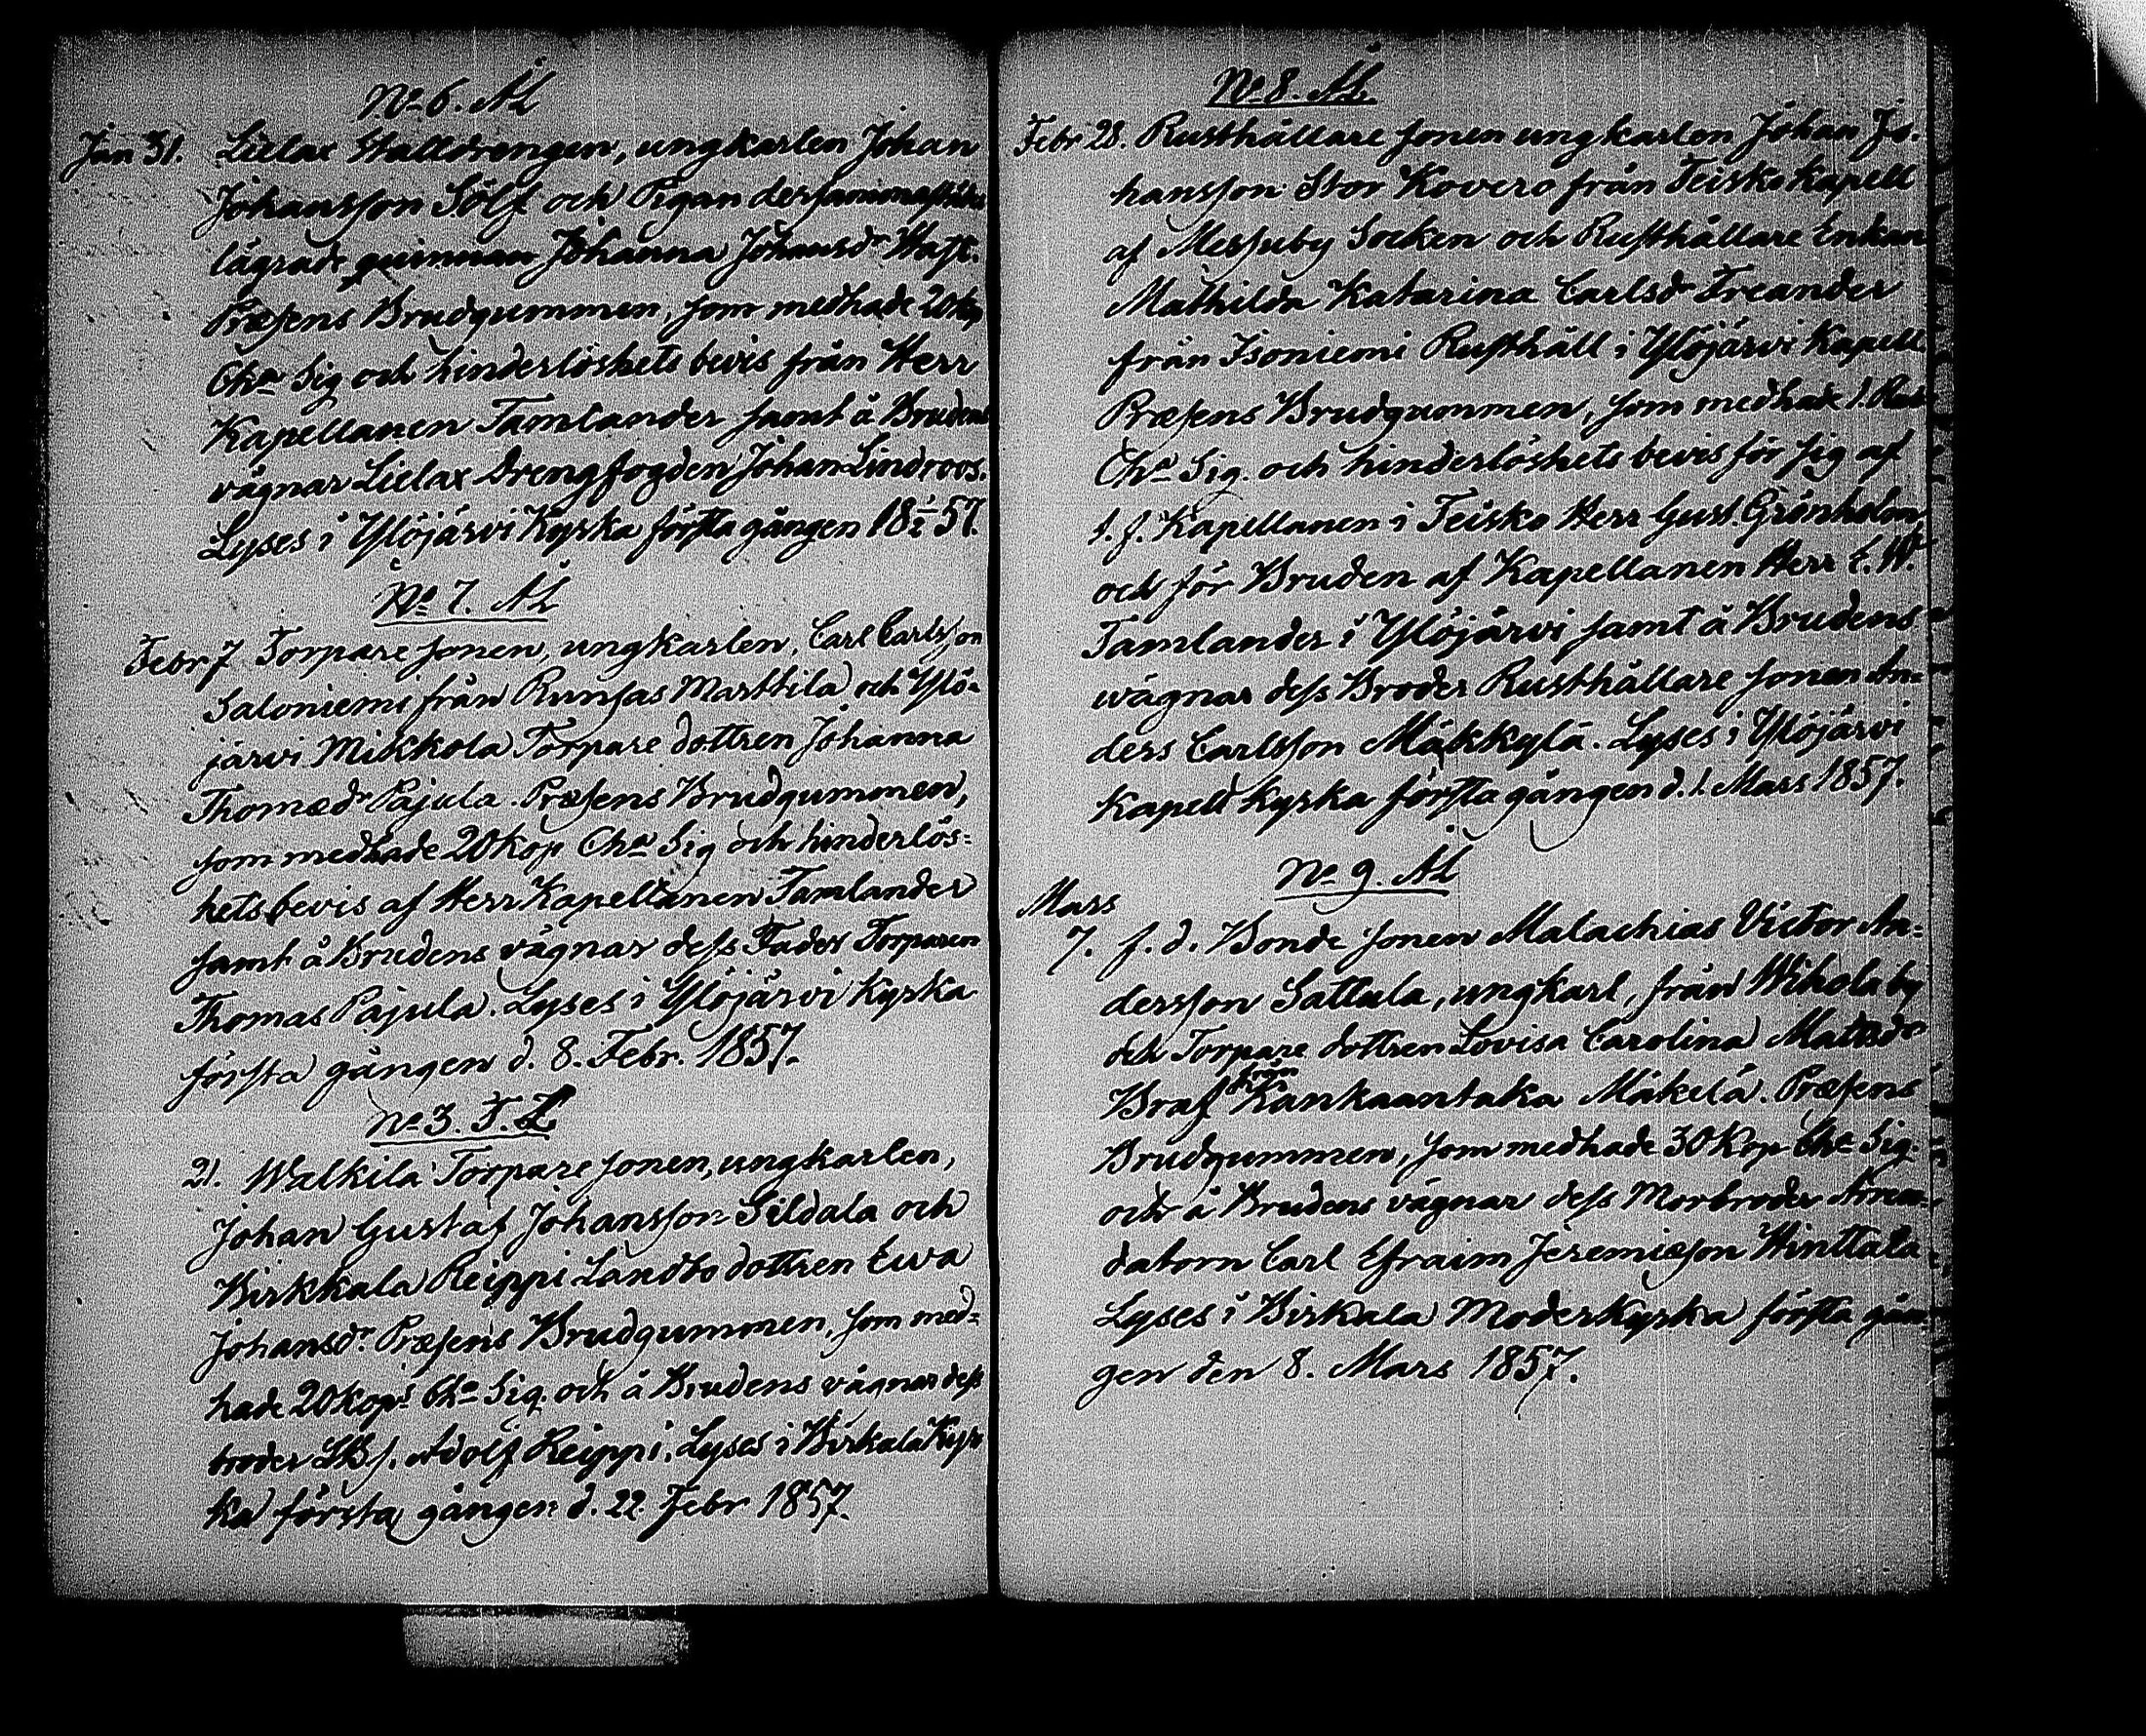 No 6. ÅL
Jan 31. Lielax Stalldrengen, ungkarlen Johan
Johansson Sölf och Pigan dersammastädes
lägrade quinnan Johanna Johansdr
Præsens Brudgummen, som medhade 20 kop
Cha Sig och hinderlöshets bevis från Herr
Kapellanen Tamlander samt å Brudens
vägnar Lielax Drengfogden Johan Lindroos.
Lyses i Ylöjärvi Kyrka första gången 18 1/2 57.
No 7. ÅL
Febr 7 Torpare sonen, ungkarlen, Carl Carlsson
Saloniemi från Runsas Marttila och Ylö-
järvi Mikkola Torpare dottren Johanna
Thomædr Pajula. Præsens Brudgummen,
som medhade 20 kop Cha Sig och hinderlös-
hets bevis af Herr Kapellanen Tamlander
samt å Brudens vägnar dess Fader Torparen
Thomas Pajula. Lyses i Ylöjärvi Kyrka
första gången d. 8. Febr. 1857.
No 3. F. L
21. Walkila Torpare sonen, ungkarlen,
Johan Gustaf Johansson Sildala och
Birkkala Reippi Landbo dottren Ewa
Johansdr. Præsens Brudgummen, som med-
hade 20 kops Cha Sig. och å Brudens vägnar dess
broder LBs. Adolf Reippi. Lyses i Birkala Kyr
ka första gången d. 22. Febr 1857.
No 8. ÅL
Febr 28. Rusthållare sonen ungkarlen Johan Jo-
hansson Stor Kovero från Teisko Kapell
af Messuby Socken och Rusthållare Enkan
Mathilda Katarina Carlsdr Freander
från Isoniemi Rusthåll i Ylöjärvi Kapell
Præsens Brudgummen, som medhade 1. Rub
Cha Sig. och hinderlöshets bevis för sig af
t. f. Kapellanen i Teisko Herr Gust. Grönholm
och för Bruden af Kapellanen Herr E. W.
Tamlander i Ylöjärvi samt å Brudens
wägnar dess Broder Rusthållare sonen An-
ders Carlsson Mäkkylä. Lyses i Ylöjärvi
Kapell Kyrka första gången d. 1. Mars 1857.
No 9. ÅL
Mars
7. f. d. Bonde sonen Malachias Victor An-
dersson Sattula, ungkarl, från Wihola by
och Torpare dottren Lovisa Carolina Matsdr
Braf från Kankaantaka Mäkelä. Præsens
Brudgummen, som medhade 30 Kop Cha Sig.
och å Brudens vägnar dess Morbroder Aren-
datorn Carl Efraim Jeremiæson Hinttala
Lyses i Birkala Moderkyrka första gån-
gen den 8. Mars 1857.